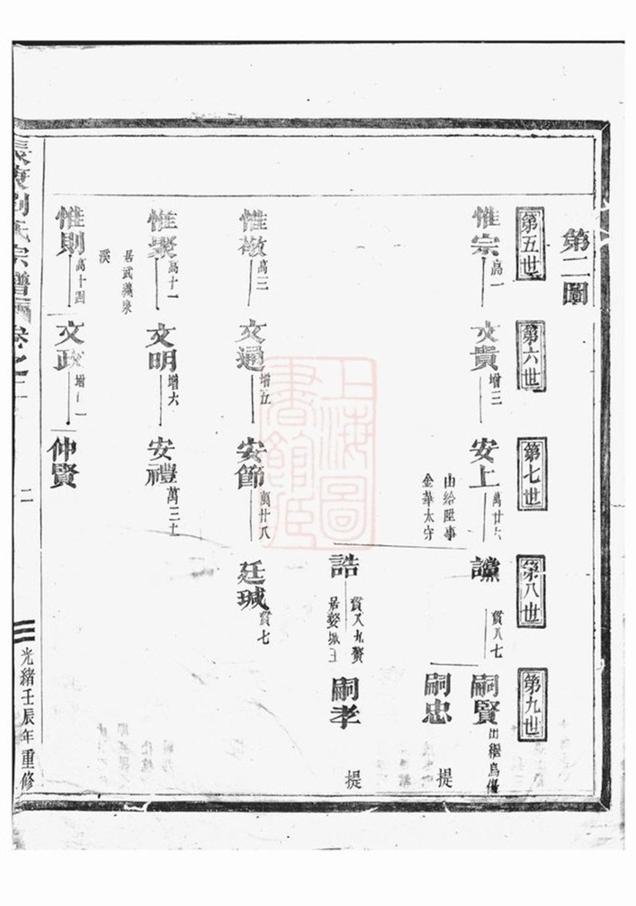 第二圖
第五世
第六世
第七世
第八世
第九世
惟宗 萬一
文貴 增三
安上 萬廿六
由給陞事
金華太守
讜 貫八七
嗣賢 出繼烏傷
嗣忠 提
誥 貫八九贅
居婺城王
嗣孝 提
惟敬 萬三
文通 增五
安節 萬廿八
廷瑊 貫七
惟聚 萬十一
居武義泉
溪
文明 增六
安禮 萬三十
惟則 萬十四
文政 增十一
仲賢
劉氏宗譜 卷之
二
光緒壬辰年重修
上海圖
書館臣